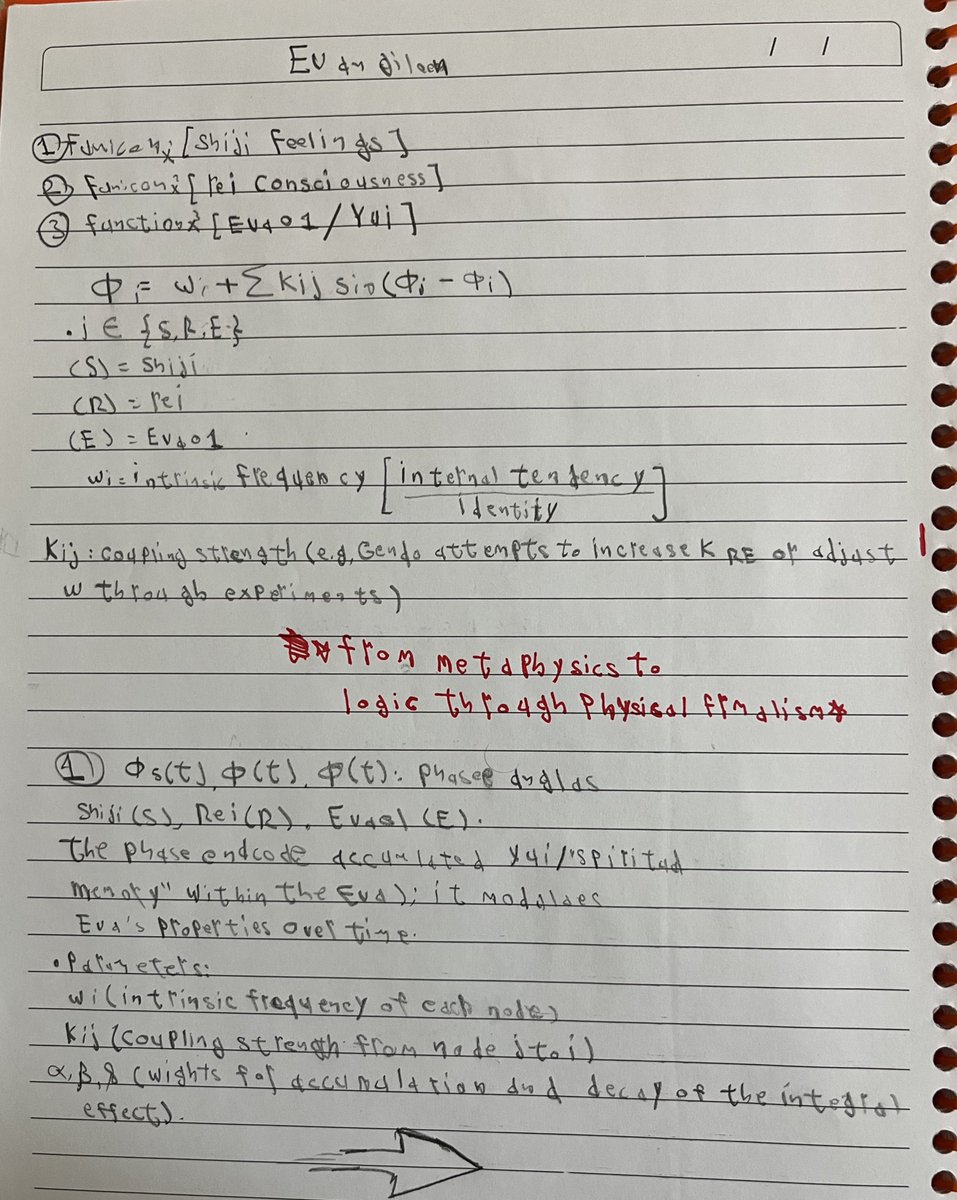 Evangileon
/ /
① Funicon x [Shiji Feelings]
② Funicon x² [rei Consciousness]
③ function x³ [Eva01/Yui]
Φi = wi + ∑ Kij sin(Φj - Φi)
• j ∈ {S,R,E}
(S) = Shiji
(R) = rei
(E) = Eva01
wi = intrinsic frequency [internal tendency / Identity]
Kij : coupling strength (e.g, Gendo attempts to increase K RE or adjust
w through experiments)
from metaphysics to
logic through physical frmalism★
① Φs(t), Φ(t), Φ(t): Phasee
Shiji(S), Rei(R), Eva01 (E).
the phase endcode accumlated Yui/"spiritual
memory" within the Eva); it
Eva's properties over time.
• Parameters:
wi (intrinsic frequency of each node)
Kij (coupling strength from node j to i)
α, β, 8 (wights for accumulation and decay of the integral
effect).